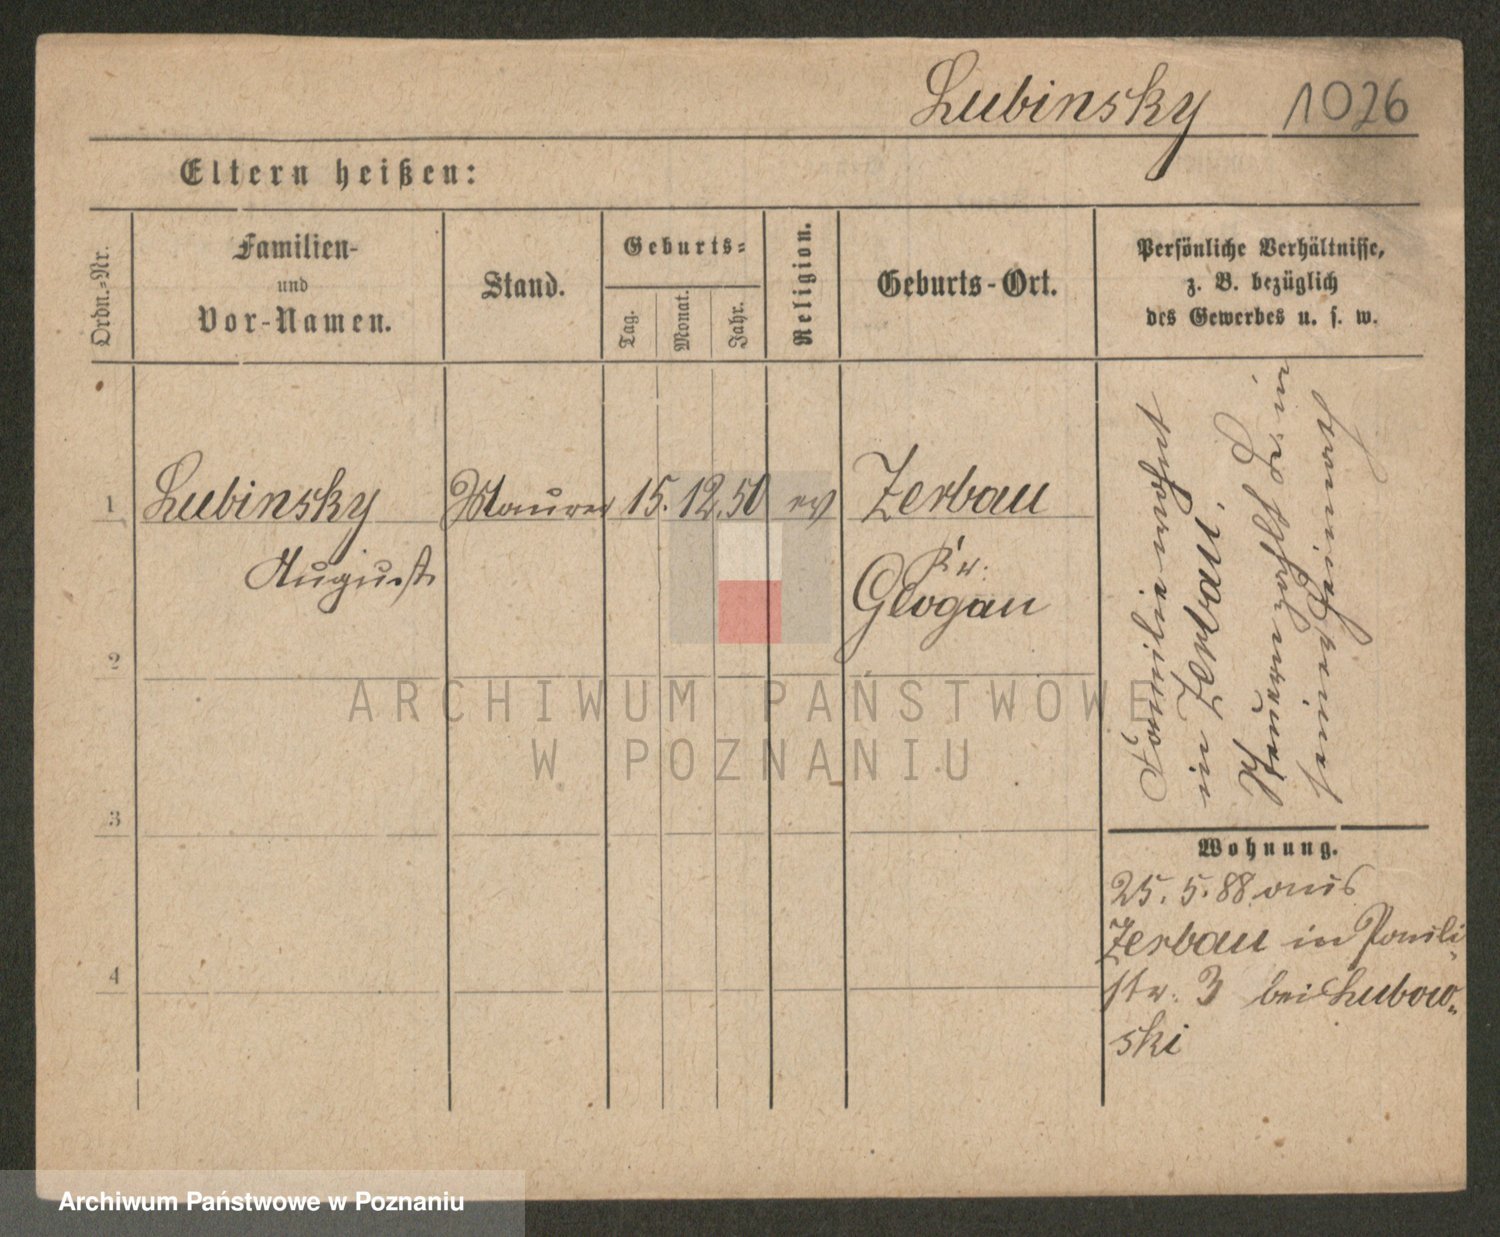 Lubinsky 1026
Eltern heißen:
Ordn.-Nr.
Familien-
und
Vor-Namen.
Stand.
Geburts-
Tag.
Monat.
Jahr.
Religion.
Geburts-Ort.
Persönliche Verhältnisse,
z. B. bezüglich
des Gewerbes u. s. w.
1 Lubinsky Maurer 15. 12. 50 ev Zerbau
August
Kr.
Glogau
2
3
4
Familie wohnt
in Zerbau.
Steuern zahlt Lu. in
seiner
Wohnung.
25. 5. 88 aus
Zerbau in Pauli-
str. 3 bei Lubow-
ski
ARCHIWUM PAŃSTWOWE
W POZNANIU
Archiwum Państwowe w Poznaniu